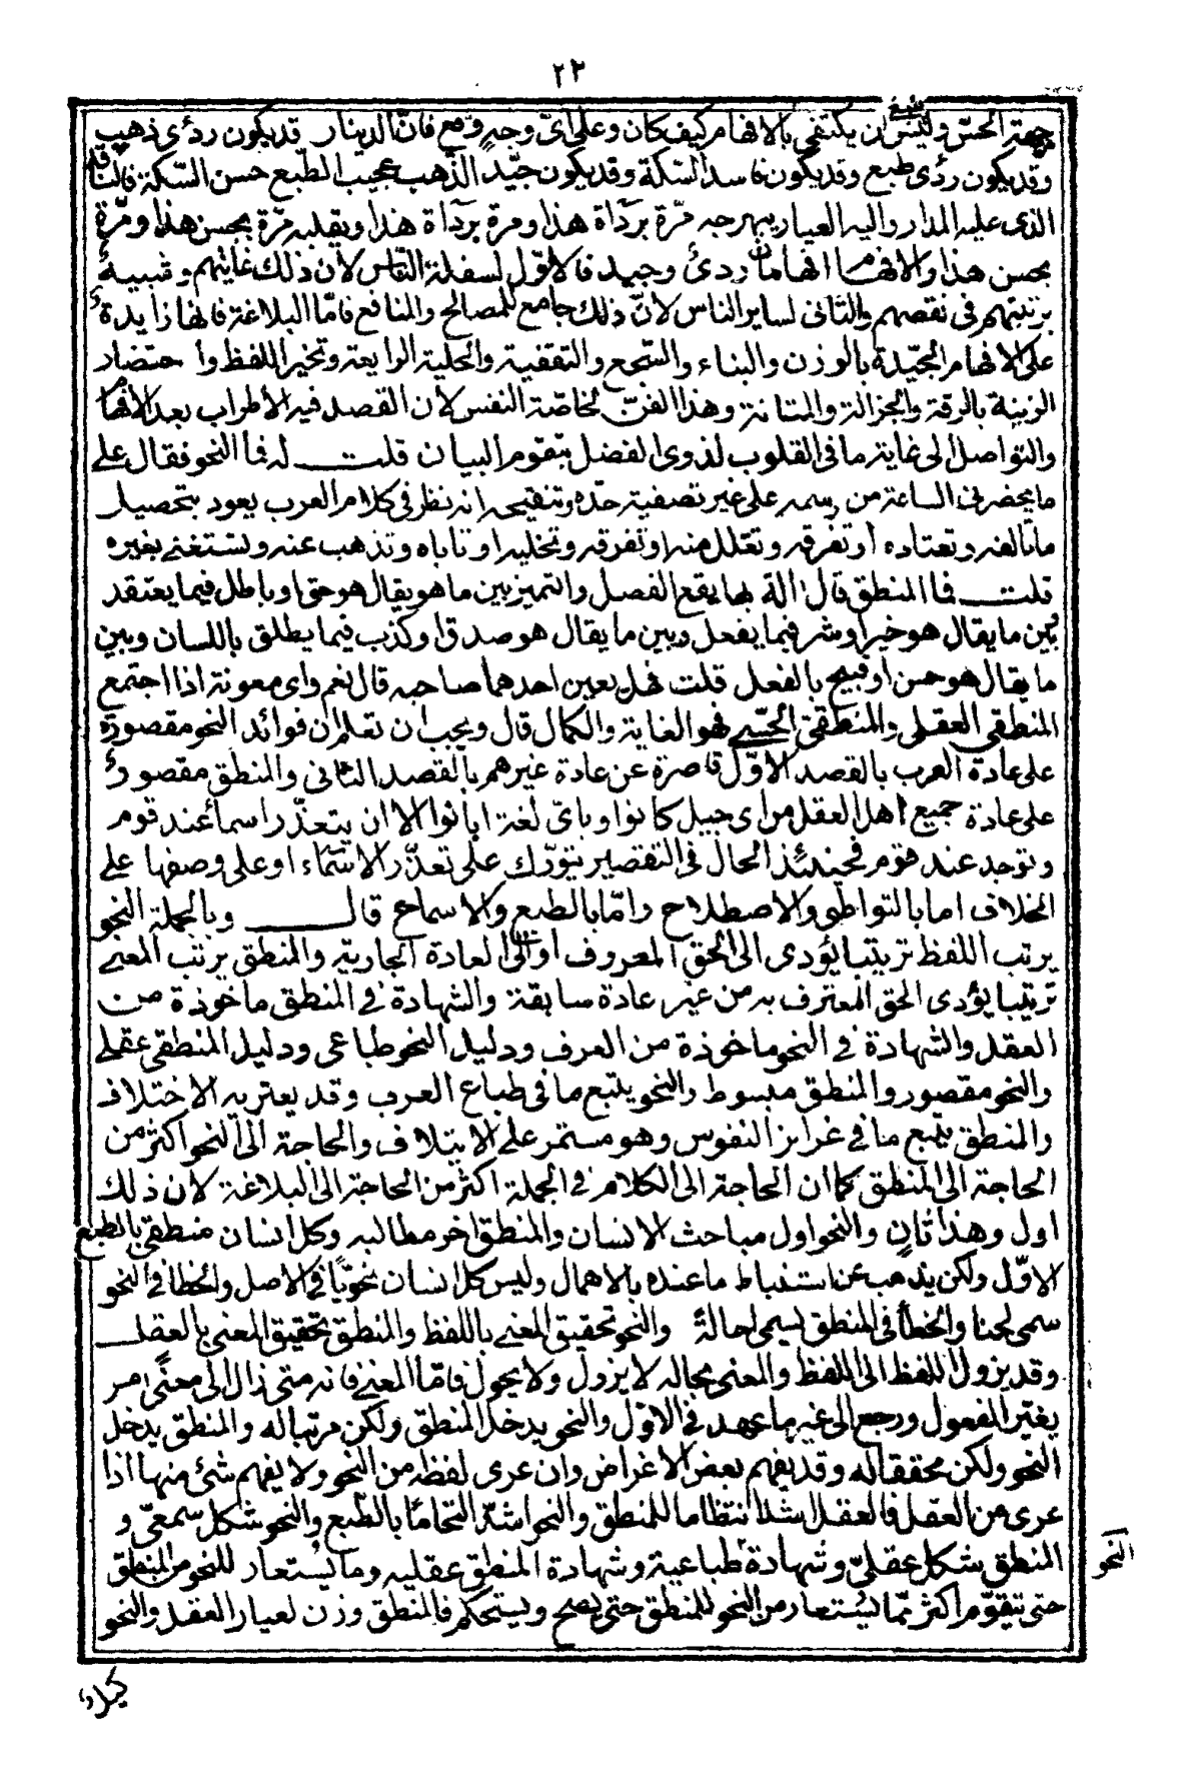 ٢٣
جهة الحسّ وليس ينبغى ان يكتفى بالافهام كيف كان وعلى اىّ وجهٍ وقع فانّ الدينار قد يكون ردئ ذهب
وقد يكون ردئ طبع وقد يكون فاسد السّكة وقد يكون جيّد الذّهب عجيب الطّبع حسن السّكة فالناقد
الذى عليه المدار واليه العيار يبهرجه مرّة برَدآءة هذا ومرة بردآءة هذا ويقبله مرّة بحسن هذا ومرّة
بحسن هذا والافهام افهامان ردئ وجيد فالاوّل لسفلة النّاس لان ذلك غايتهم وشبيهٌ
برتبتهم فى نقصهم والثانى لساير الناس لانّ ذلك جامع للمصالح والمنافع فامّا البلاغة فانها زايدةٌ
على الافهام الجيّدة بالوزن والبناء والسّجع والتقفية والحلية الرايعة وتخير اللفظ وا حتضار
الزينة بالرقة والجزالة والمتانة وهذا الفنّ لخاصّة النفس لان القصد فيه الأطراب بعد الافهام
والتواصل الى غاية ما فى القلوب لذوى الفضل بتقوم البيان قلت له فما النحو فقال على
ما يحضرنى الساعة من رسمه على غير تصفية حدّه وتنقيحه انه نظر فى كلام العرب يعود بتحصيل
ما تالفه وتعتاده او تفرقه وتعلل منه او تفرقه وتخليه او تاباه وتذهب عنه وتستغنى بغيره
قلت فما المنطق قال آلة بها يقع الفصل والتميز بين ما هو يقال هو حق او باطل فيما يعتقد
وبين ما يقال هو خير او شر فيما يفعل وبين ما يقال هو صدق او كذب فيما يطلق باللسان وبين
ما يقال هو حسن او قبيح بالفعل قلت فهل يعين احدهما صاحبه قال نعم واى معونة اذا اجتمع
المنطق العقلى والمنطق الحسّى فهو الغاية والكمال قال ويجب ان تعلم ان فوائد النحو مقصورة
على عادة العرب بالقصد الاوّل قاصرة عن عادة غيرهم بالقصد الثانى والمنطق مقصور
على عادة جميع اهل العقل من اى جيل كانوا وباىّ لغة ابانوا الا ان يتعذّر اسماً عند قوم
ويوجد عند قوم فحينئذ الحال فى التقصير يتورّك على تعذّر الاسمآء او على وصفها على
الخلاف اما بالتواطى والاصطلاح وامّا بالطبع والاسماع قال وبالجملة النحو
يرتب اللفظ ترتيبا يؤدى الى الحق المعروف او الى العادة الجارية والمنطق يرتب المعنى
ترتيبا يؤدى الحق المعترف به من غير عادة سابقة والشهادة فى المنطق ماخوذة من
العقل والشهادة فى النحو ماخوذة من العرف ودليل النحو طباعى ودليل المنطقى عقلى
والنحو مقصور والمنطق مبسوط والنحو يتبع ما فى طباع العرب وقد يعتريه الاختلاف
والمنطق يتبع ما فى غرايز النفوس وهو مستمر على الايتلاف والحاجة الى النحو اكثر من
الحاجة الى المنطق كما ان الحاجة الى الكلام فى الجملة اكثر من الحاجة الى البلاغة لان ذلك
اول وهذا ثانٍ والنحو اول مباحث الانسان والمنطق اخر مطالبه وكل انسان منطقى بالطبع
الاوّل ولكن يذهب عن استنباط ما عنده بالاهمال وليس كل انسان نحويّا فى الاصل والخطا فى النحو
سمى لحنا والخطأ فى المنطق يسمى احالةً والنحو تحقيق المعنى باللفظ والمنطق تحقيق المعنى بالعقل
وقد يزول اللفظ الى اللفظ والمعنى بحاله لا يزول ولا يحول فامّا المعنى فانه متى زال الى معنًى آخر
يغيّر المعقول ورجع الى غير ما عهد فى الاوّل والنحو يدخل المنطق ولكن مرتبا له والمنطق يدخل
النحو ولكن محققا له وقد يفهم بعض الاغراض وان عرى لفظه من النحو ولا يفهم شئ منها اذا
عرى من العقل فالعقل اشدّ انتظاما للمنطق والنحو اشدّ التحامًا بالطّبع والنحو شكل سمعىّ و
المنطق شكل عقلىّ وشهادة النحو طباعية وشهادة المنطق عقليه وما يُستعار للنحو من المنطق
حتى يتقوّم اكثر ممّا يُستعار من النحو للمنطق حتى يصح ويستحكم فالمنطق وزن لعيار العقل والنحو
كيل